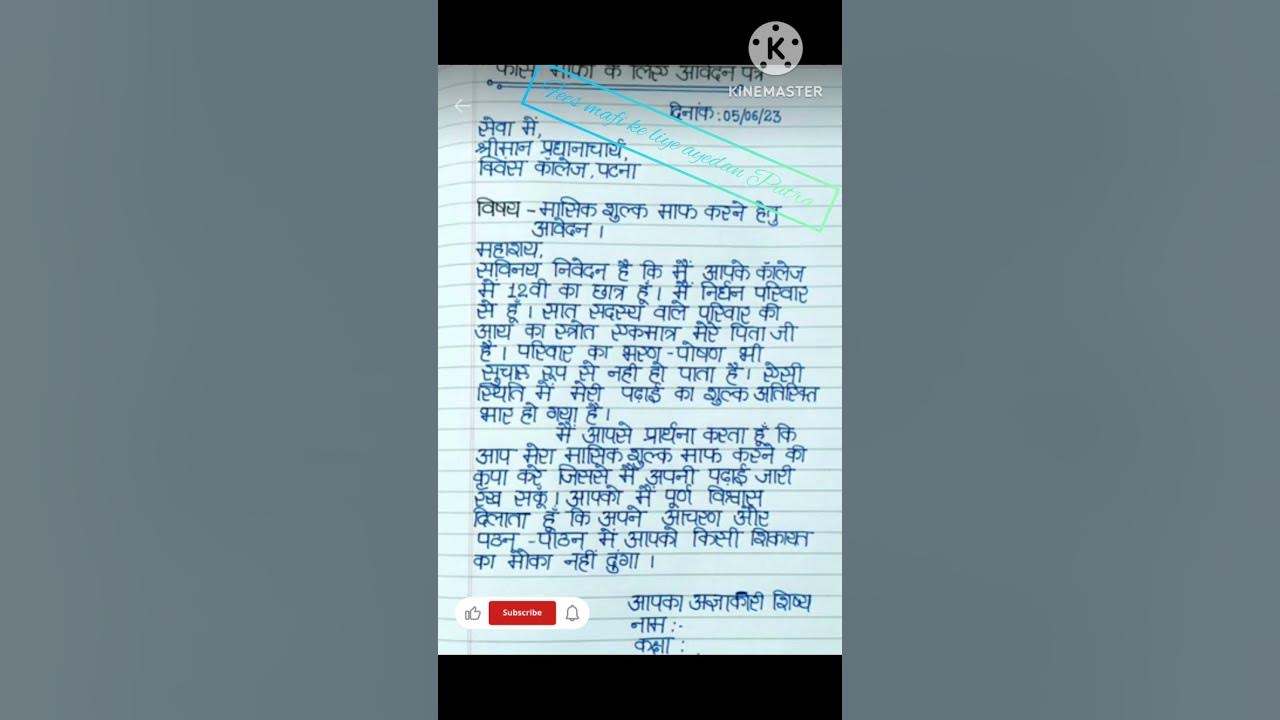 KINEMASTER
फीस माफी के लिए आवेदन पत्र
Fees mafi ke liye ayedan Patra
दिनांक : 05/06/23
सेवा में,
श्रीमान प्रधानाचार्य,
क्विंस कॉलेज, पटना
विषय - मासिक शुल्क माफ करने हेतु
आवेदन ।
महाशय,
सविनय निवेदन है कि मैं आपके कॉलेज
में 12वी का छात्र हूँ । मैं निर्धन परिवार
से हूँ । सात सदस्य वाले परिवार की
आय का स्त्रोत एकमात्र मेरे पिता जी
है । परिवार का भरण - पोषण भी
सुचारु रूप से नहीं हो पाता है । ऐसी
स्थिति में मेरी पढ़ाई का शुल्क अतिरिक्त
भार हो गया है ।
मैं आपसे प्रार्थना करता हूँ कि
आप मेरा मासिक शुल्क माफ करने की
कृपा करें जिससे मैं अपनी पढ़ाई जारी
रख सकूं । आपको मैं पूर्ण विश्वास
दिलाता हूँ कि अपने आचरण और
पठन - पाठन में आपको किसी शिकायत
का मौका नहीं दुंगा ।
आपका अज्ञाकारी शिष्य
नाम :-
कक्षा :
Subscribe